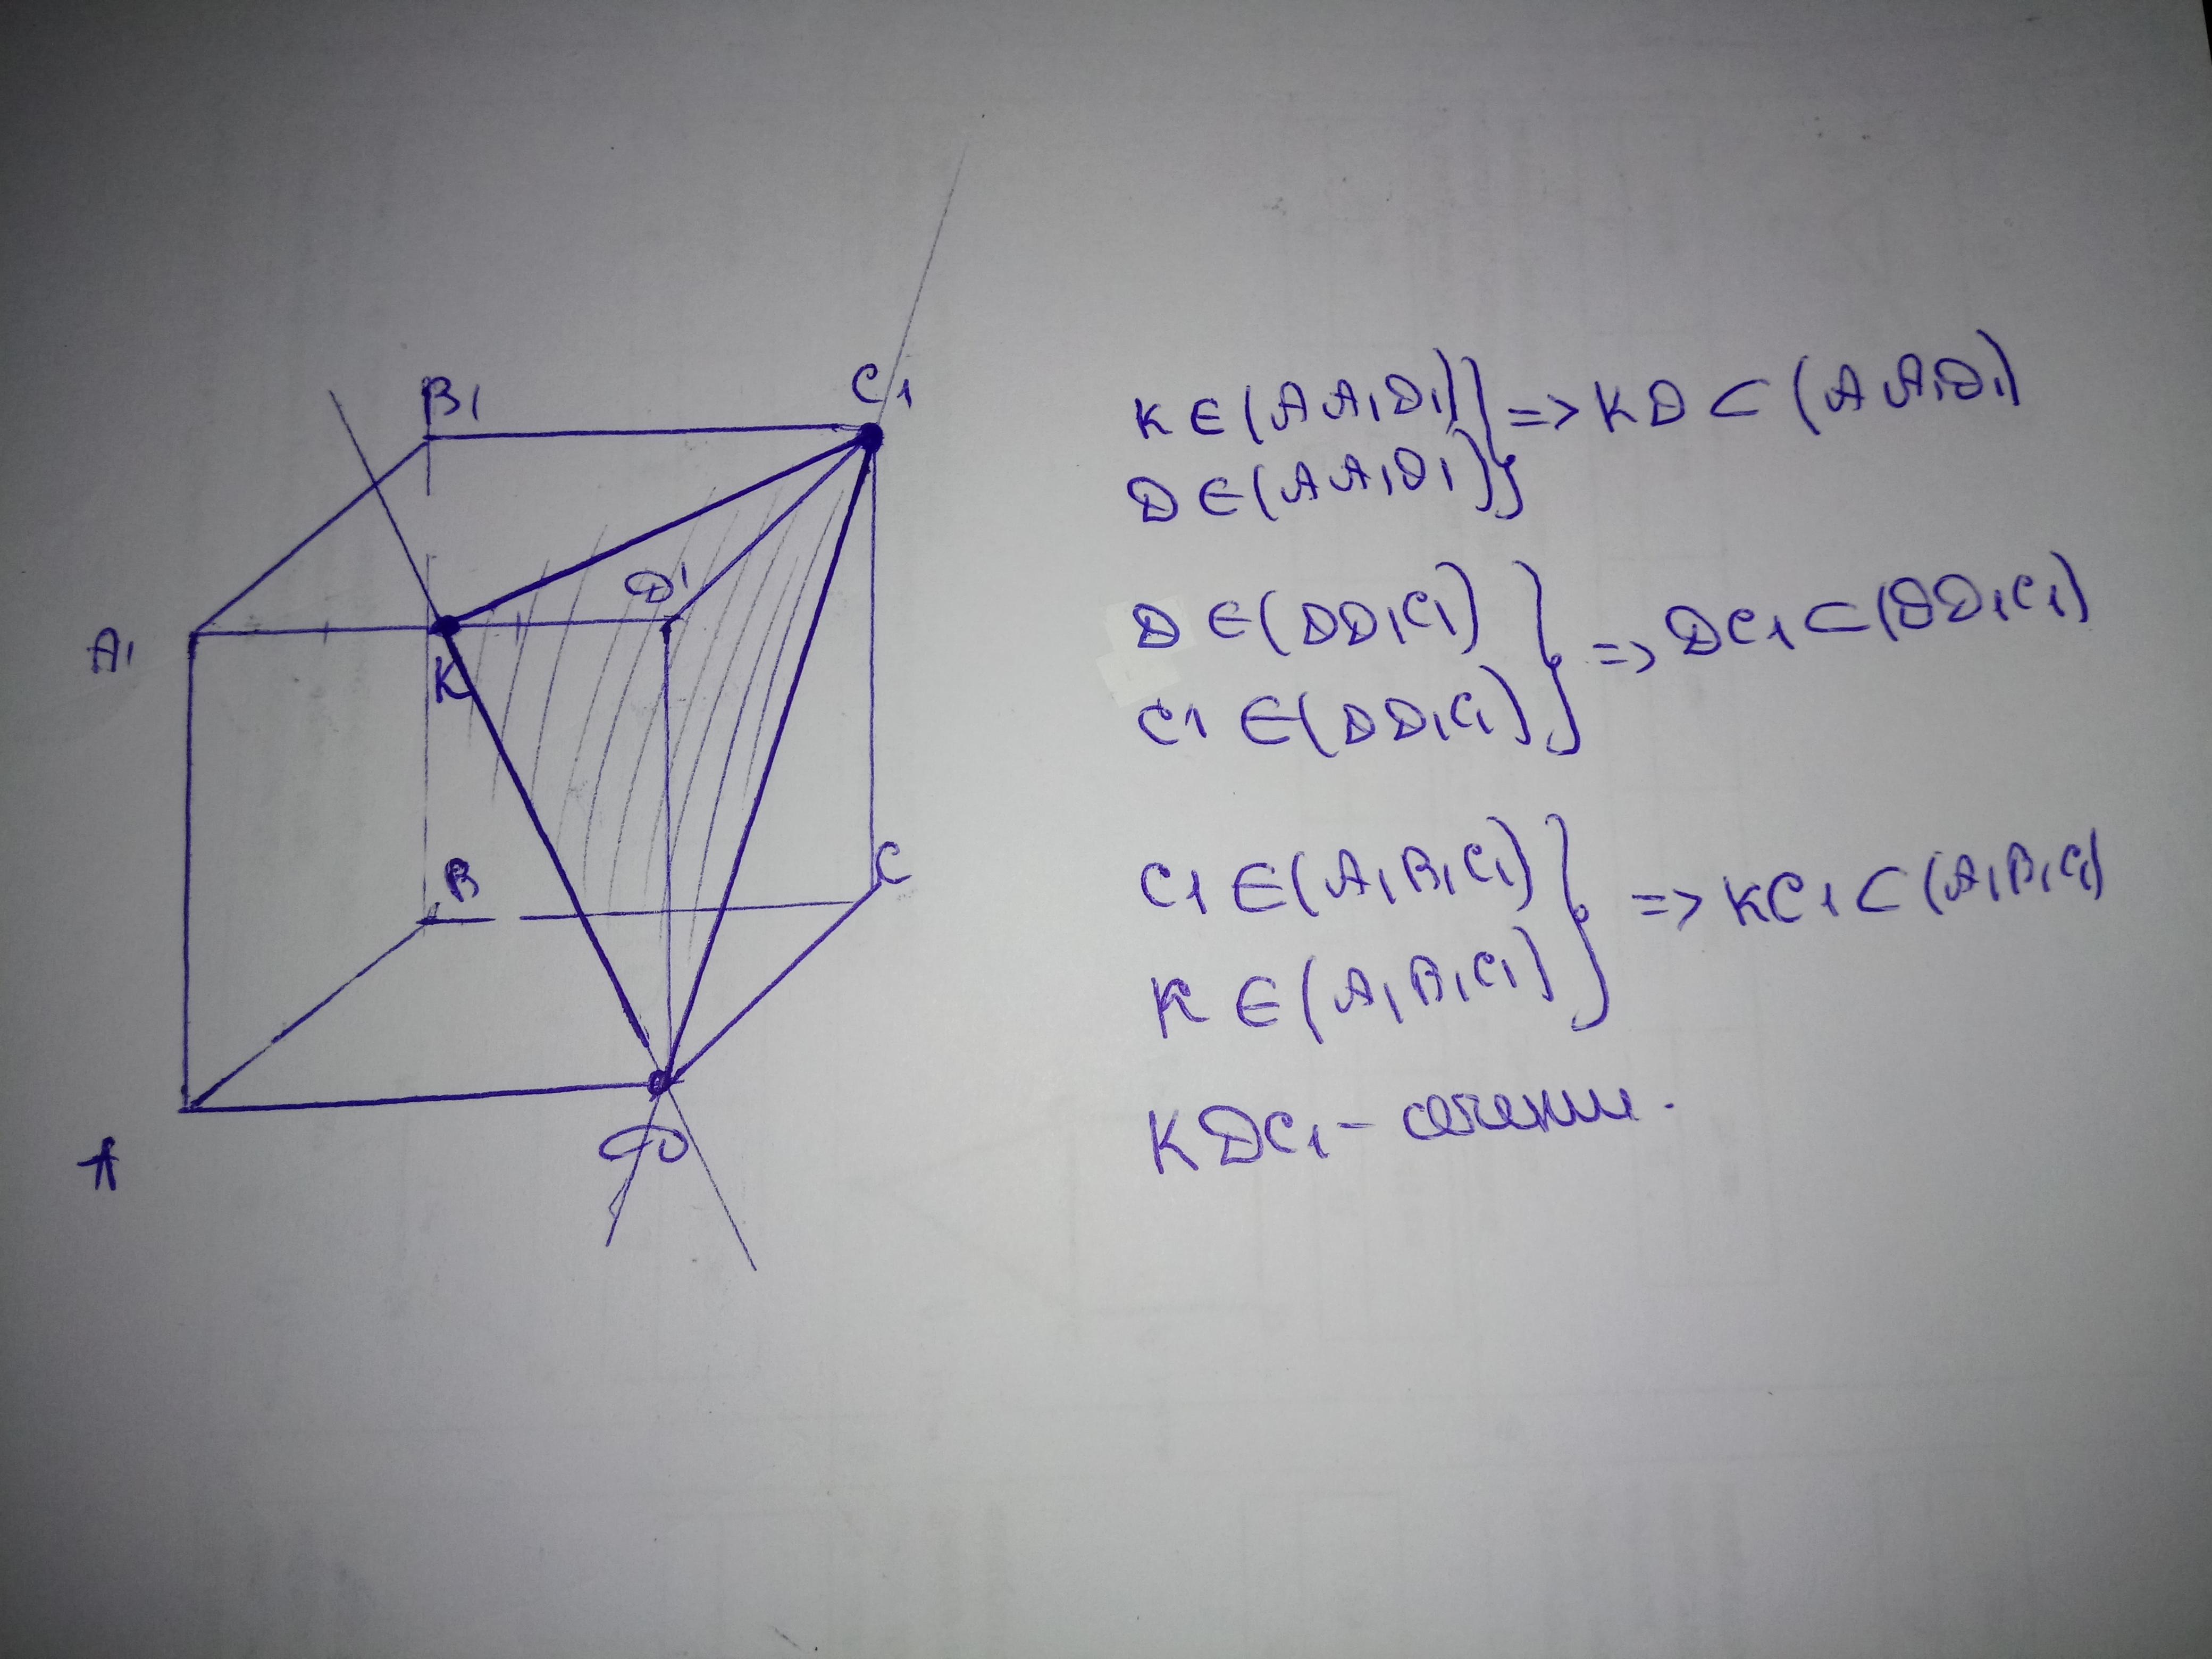 B1
C1
A1
K
D1
B
C
A
D
K ∈ (AA1D1) } => KD ⊂ (AA1D1)
D ∈ (AA1D1)
D ∈ (DD1C1) } => DC1 ⊂ (DD1C1)
C1 ∈ (DD1C1)
C1 ∈ (A1B1C1) } => KC1 ⊂ (A1B1C1)
K ∈ (A1B1C1)
KDC1 - сечение.